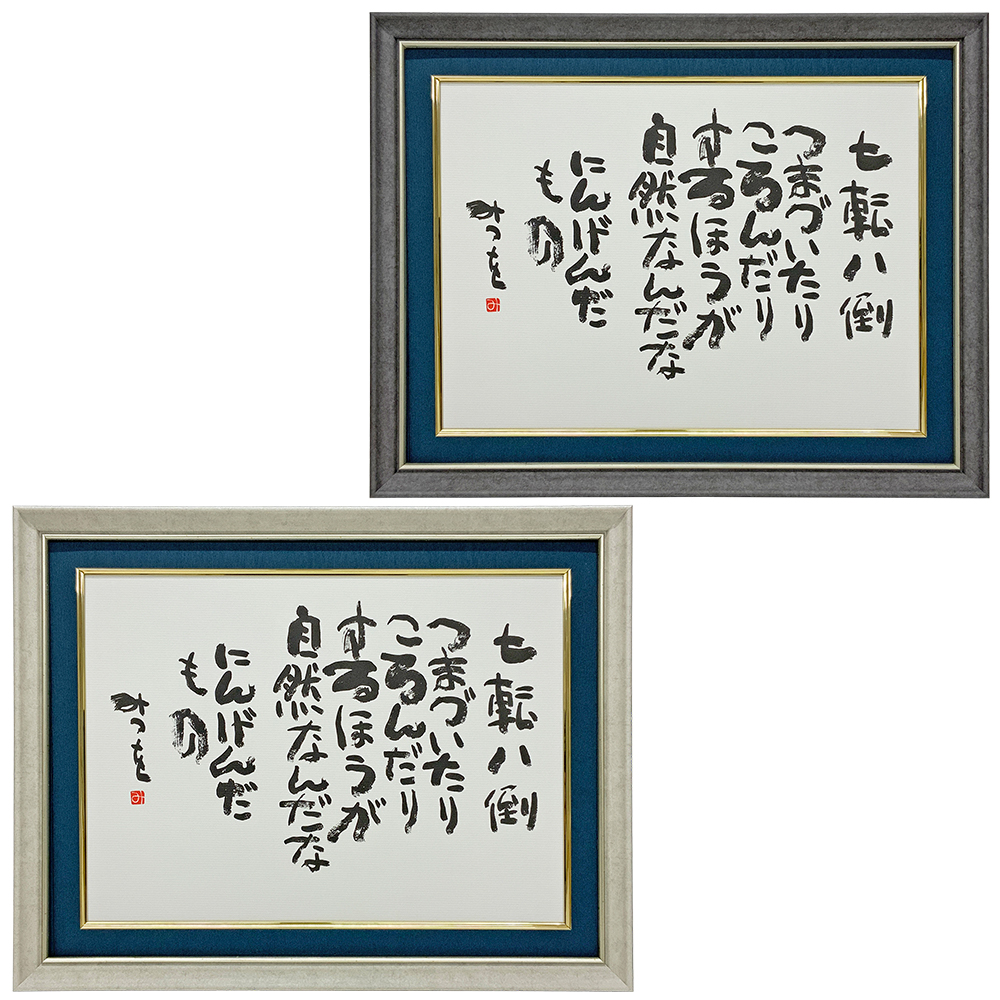 七転八倒
つまづいたり
ころんだり
するほうが
自然なんだな
にんげんだ
もの
みつを
み
七転八倒
つまづいたり
ころんだり
するほうが
自然なんだな
にんげんだ
もの
みつを
み